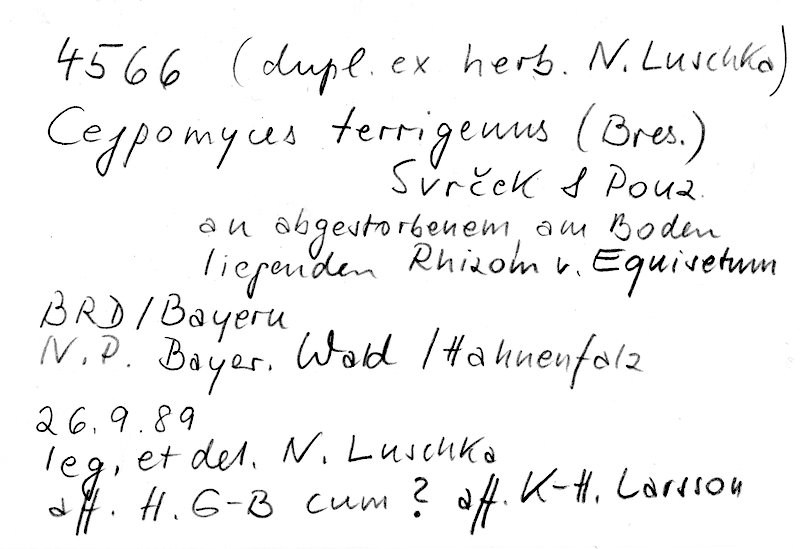 4566 (dupl. ex herb. N. Luschka)
Cejpomyces terrigenus (Bres.)
Svrček & Pouz.
an abgestorbenem, am Boden
liegenden Rhizom v. Equisetum
BRD/Bayern
N.P. Bayer. Wald /Hahnenfalz
26.9.89
leg. et det. N. Luschka
aff. H. G-B cum ? aff. K-H. Larsson